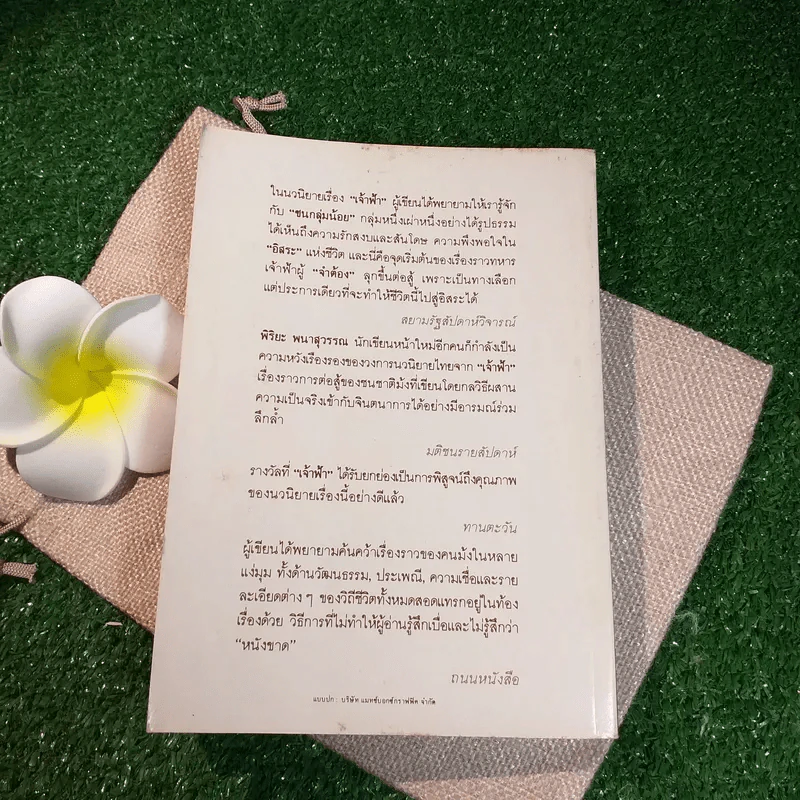 ในนวนิยายเรื่อง "เจ้าฟ้า" ผู้เขียนได้พยายามให้เรารู้จัก
กับ "ชนกลุ่มน้อย" กลุ่มหนึ่งเผ่าหนึ่งอย่างได้รูปธรรม
ได้เห็นถึงความรักสงบและสันโดษ ความพึงพอใจใน
"อิสระ" แห่งชีวิต และนี่คือจุดเริ่มต้นของเรื่องราวทหาร
เจ้าฟ้าผู้ "จำต้อง" ลุกขึ้นต่อสู้ เพราะเป็นทางเลือก
แต่ประการเดียวที่จะทำให้ชีวิตนี้ไปสู่อิสระได้
สยามรัฐสัปดาห์วิจารณ์
พิริยะ พนาสุวรรณ นักเขียนหน้าใหม่อีกคนก็กำลังเป็น
ความหวังเรื่องรองของวงการนวนิยายไทยจาก "เจ้าฟ้า"
เรื่องราวการต่อสู้ของชนชาติม้งที่เขียนโดยกลวิธีผสาน
ความเป็นจริงเข้ากับจินตนาการได้อย่างมีอารมณ์ร่วม
ลึกล้ำ
มติชนรายสัปดาห์
รางวัลที่ "เจ้าฟ้า" ได้รับยกย่องเป็นการพิสูจน์ถึงคุณภาพ
ของนวนิยายเรื่องนี้อย่างดีแล้ว
ทานตะวัน
ผู้เขียนได้พยายามค้นคว้าเรื่องราวของคนม้งในหลาย
แง่มุม ทั้งด้านวัฒนธรรม, ประเพณี, ความเชื่อและราย
ละเอียดต่าง ๆ ของวิถีชีวิตทั้งหมดสอดแทรกอยู่ในท้อง
เรื่องด้วย วิธีการที่ไม่ทำให้ผู้อ่านรู้สึกเบื่อและไม่รู้สึกว่า
"หนังขาด"
ถนนหนังสือ
แบบปก : บริษัท แมทช์บอกซ์กราฟฟิค จำกัด